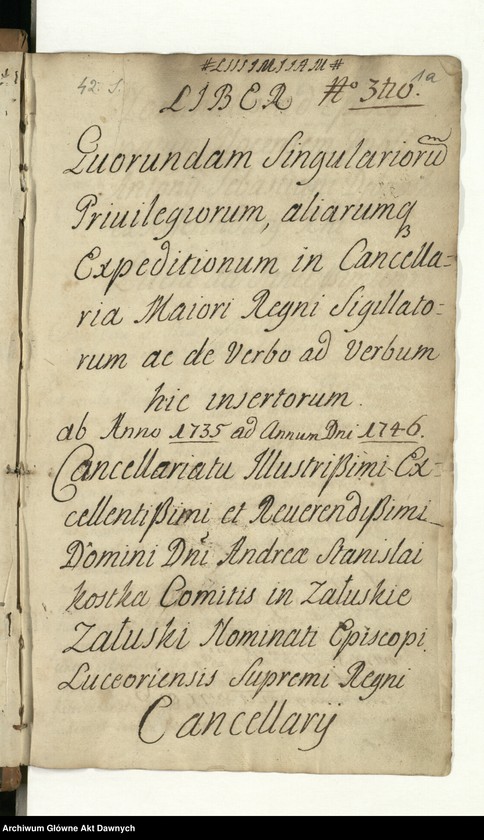 42. S.
LIBER No 340. 1a
Quorundam Singularioru͠m
Priuilegiorum, aliarumqꝫ
Expeditionum in Cancella=
ria Maiori Regni Sigillato=
rum ac de Verbo ad Verbum
hic insertorum.
ab Anno 1735 ad Annum Dni 1746.
Cancellariatu Illustrißimi Ex=
cellentißimi et Reuerendißimi
Domini Dni Andreæ Stanislai
Kostka Comitis in Załuskie
Załuski Nominati Episcopi
Luceoriensis Supremi Regni
Cancellarij
Archiwum Główne Akt Dawnych